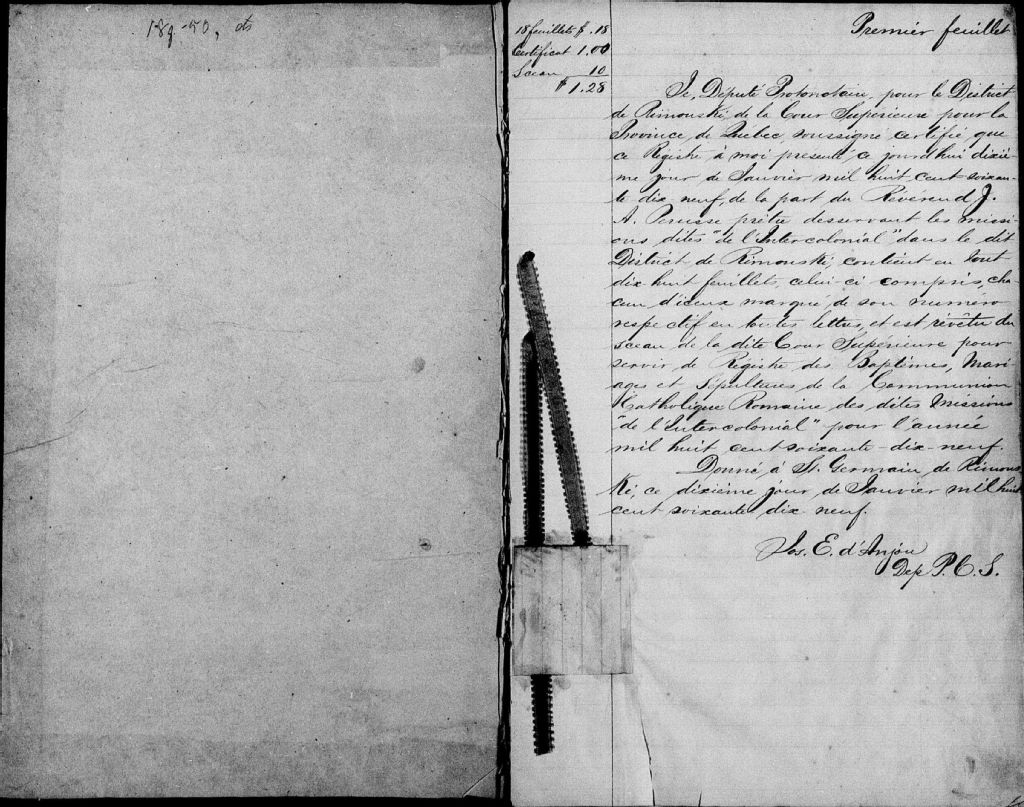 18f-50, cts
18 feuillets $ .18
Certificat 1.00
Sceau 10
$ 1.28
Premier feuillet
Je, Député Protonotaire, pour le District
de Rimouski, de la Cour Supérieure pour la
Province de Québec, soussigné certifie que
ce Registre à moi présenté, ce jourd'hui dixiè-
me jour de Janvier mil huit cent soixan-
te dix neuf, de la part du Révérend J.
A. Perusse prêtre desservant les missi-
ons dites "de l'Intercolonial" dans le dit
District de Rimouski, contient en tout
dix huit feuillets, celui-ci compris, cha-
cun d'iceux marqué de son numéro
respectif en toutes lettres, et est révêtu du
sceau de la dite Cour Supérieure pour
servir de Régistre des Baptêmes, Mari-
ages et Sépultures de la Communion
Catholique Romaine des dites Missions
"de l'Intercolonial" pour l'année
mil huit cent soixante-dix-neuf.
Donné à St. Germain de Rimous
ki, ce dixième jour de Janvier mil huit
cent soixante dix neuf.
Jos. E. d'Anjou
Dep P. C. S.